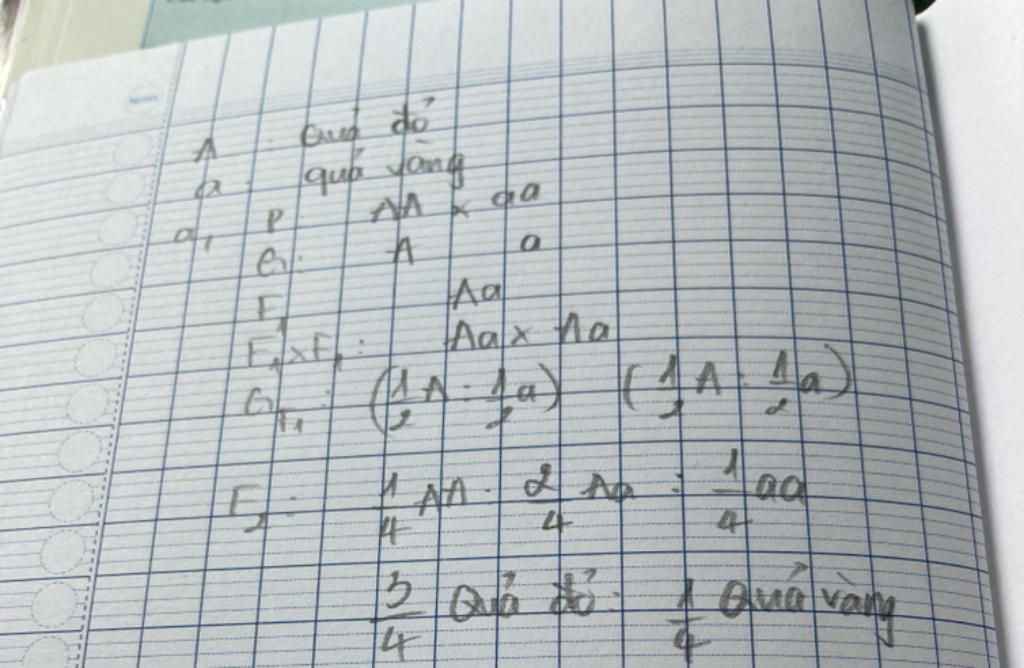 Notes
A : Quả đỏ
a : quả vàng
a, P AA x aa
G: A a
F1 Aa
F1 x F1: Aa x Aa
GF1: (1/2 A : 1/2 a) (1/2 A : 1/2 a)
F2: 1/4 AA : 2/4 Aa : 1/4 aa
3/4 Quả đỏ : 1/4 Quả vàng